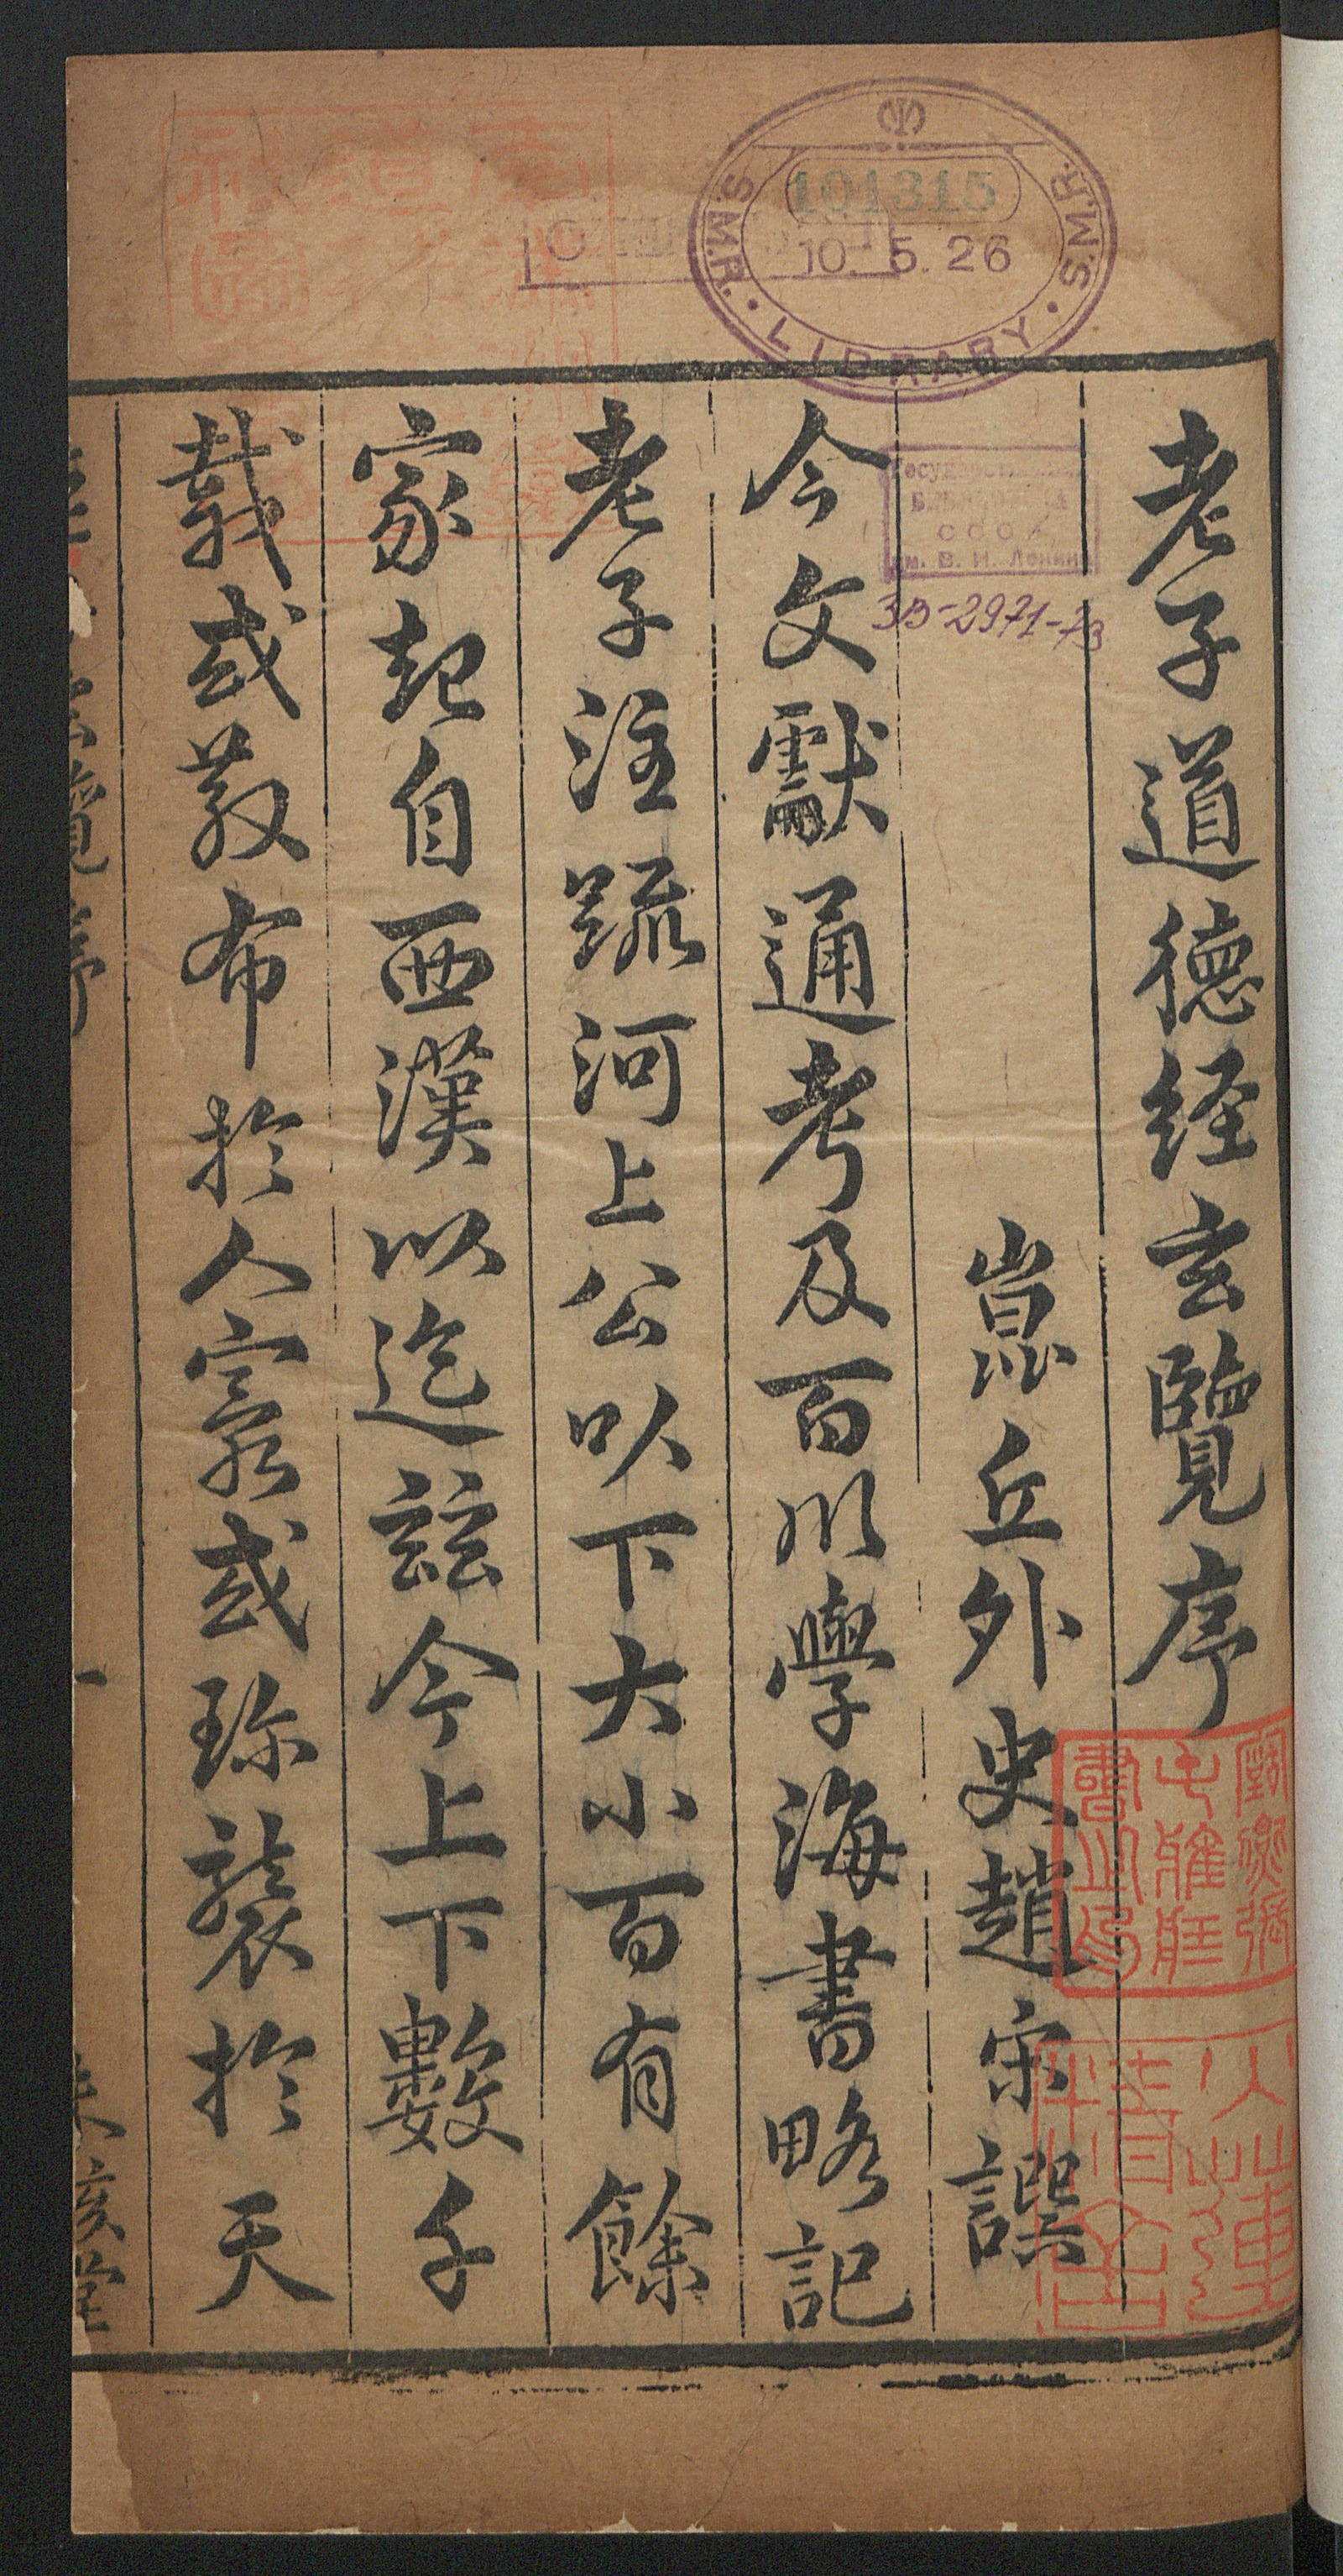 老子道德经玄覽序
崑丘外史趙宋譔
今文獻通考及百川學海書略記
老子注疏河上公以下大小百有餘
家起自西漢以迄茲今上下數千
載或散布於人寰或珎襲於天
覽序
一
亥堂
S.M.R. LIBRARY R.W.S.
101315
10. 5. 26
СССР
им. В. И. Ленина
3В-2971-73